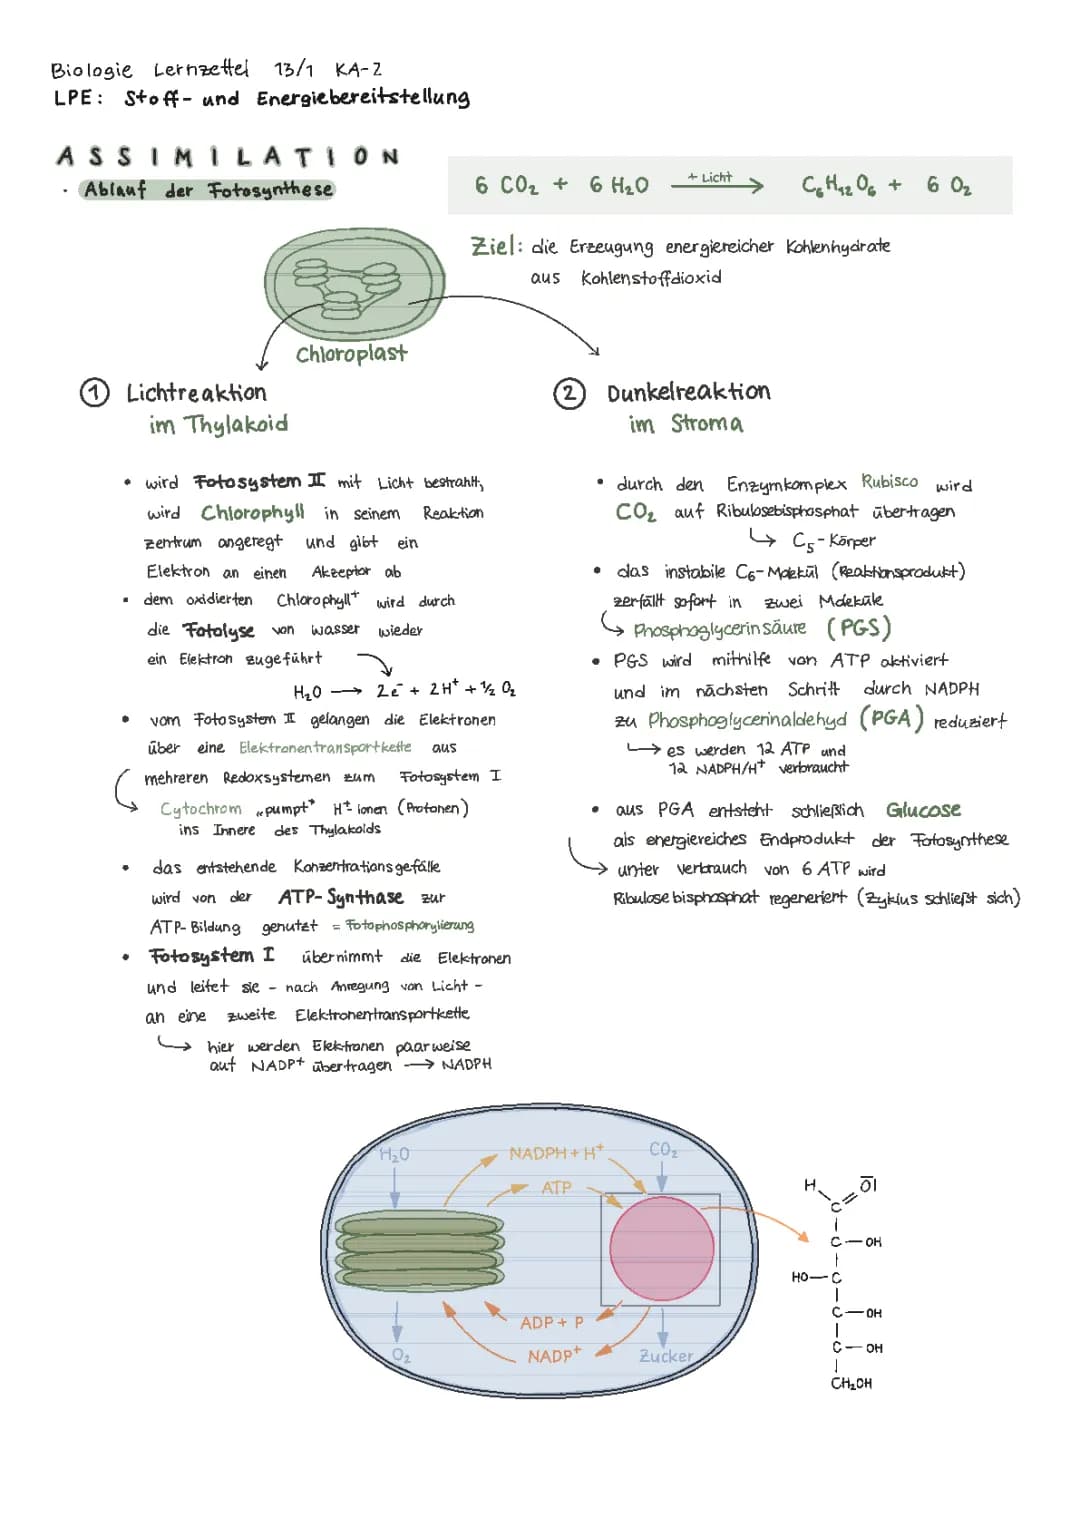 Biologie Lernzettel 13/1 KA-2
LPE: Stoff- und Energiebereitstellung
ASSIMILATION
· Ablauf der Fotosynthese
6 CO₂ + 6 H₂O + Licht → C₆H₁₂O₆ + 6 O₂
Ziel: die Erzeugung energiereicher Kohlenhydrate
aus Kohlenstoffdioxid
Chloroplast
① Lichtreaktion
im Thylakoid
• wird Fotosystem II mit Licht bestrahlt,
wird Chlorophyll in seinem Reaktion
zentrum angeregt und gibt ein
Elektron an einen Akzeptor ab
• dem oxidierten Chlorophyll⁺ wird durch
die Fotolyse von wasser wieder
ein Elektron zugeführt
H₂O → 2e⁻ + 2H⁺ + ½ O₂
• vom Fotosystem II gelangen die Elektronen
über eine Elektronentransportkette aus
mehreren Redoxsystemen zum Fotosystem I
↳ Cytochrom „pumpt" H⁺-ionen (Protonen)
ins Innere des Thylakoids
• das entstehende Konzentrationsgefälle
wird von der ATP-Synthase zur
ATP-Bildung genutzt = Fotophosphorylierung
• Fotosystem I übernimmt die Elektronen
und leitet sie - nach Anregung von Licht -
an eine zweite Elektronentransportkette
↳ hier werden Elektronen paarweise
auf NADP+ übertragen → NADPH
② Dunkelreaktion
im Stroma
• durch den Enzymkomplex Rubisco wird
CO₂ auf Ribulosebisphosphat übertragen
↳ C₅-Körper
• das instabile C₆-Molekül (Reaktionsprodukt)
zerfällt sofort in zwei Moleküle
↳ Phosphoglycerinsäure (PGS)
• PGS wird mithilfe von ATP aktiviert
und im nächsten Schritt durch NADPH
zu Phosphoglycerinaldehyd (PGA) reduziert
↳ es werden 12 ATP und
12 NADPH/H⁺ verbraucht
• aus PGA entsteht schließlich Glucose
als energiereiches Endprodukt der Fotosynthese
↳ unter verbrauch von 6 ATP wird
Ribulosebisphosphat regeneriert (Zyklus schließt sich)
H₂O
NADPH + H⁺
CO₂
ATP
ADP + P
NADP⁺
O₂
Zucker
H O̅|
C
C—OH
HO—C
C—OH
C—OH
CH₂OH